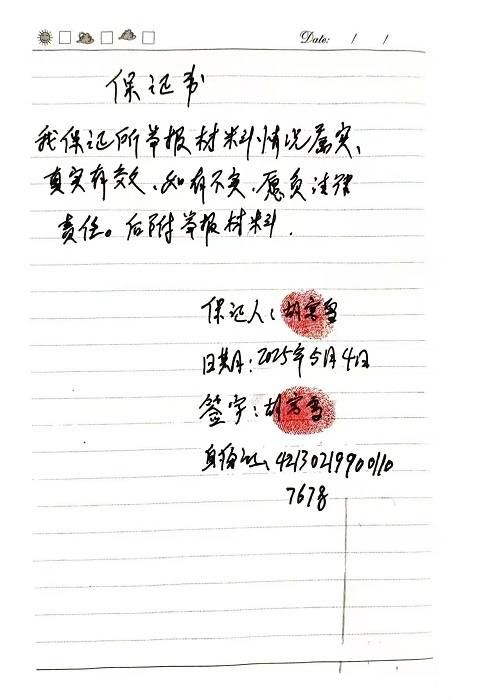 Date: / /
保证书
我保证所举报材料情况属实、
真实有效、如有不实、愿负法律
责任。后附举报材料.
保证人:胡宗雪
日期:2025年5月4日
签字:胡宗雪
身份证、421302199001107678